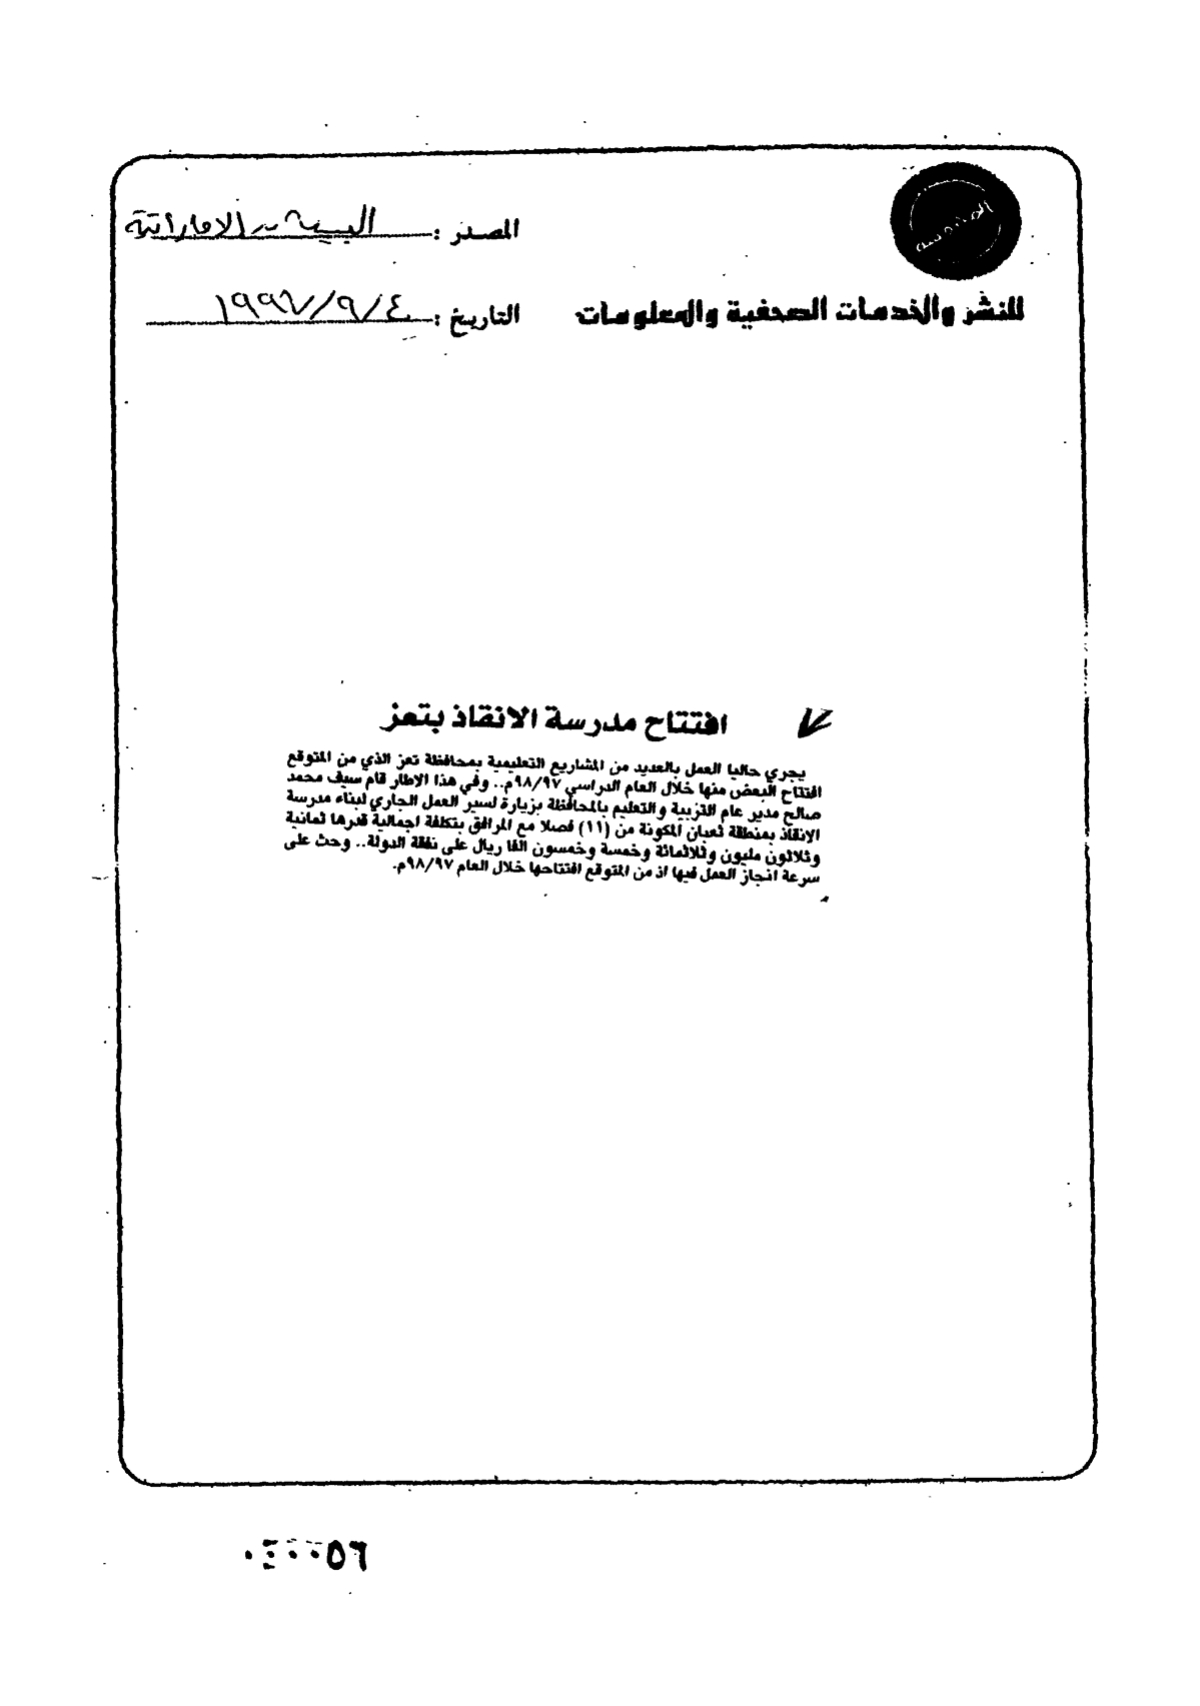 المصدر :
للنشر والخدمات الصحفية والمعلومات
التاريخ : ١٩٩٧/٩/٤
افتتاح مدرسة الانقاذ بتعز
يجري حاليا العمل بالعديد من المشاريع التعليمية بمحافظة تعز الذي من المتوقع
افتتاح البعض منها خلال العام الدراسي ٩٨/٩٧م.. وفي هذا الاطار قام سيف محمد
صالح مدير عام التربية والتعليم بالمحافظة بزيارة لسير العمل الجاري لبناء مدرسة
الانقاذ بمنطقة ثعبان المكونة من (١١) فصلا مع المرافق بتكلفة اجمالية قدرها ثمانية
وثلاثون مليون وثلاثمائة وخمسة وخمسون الفا ريال على نفقة الدولة.. وحث على
سرعة انجاز العمل فيها اذ من المتوقع افتتاحها خلال العام ٩٨/٩٧م.